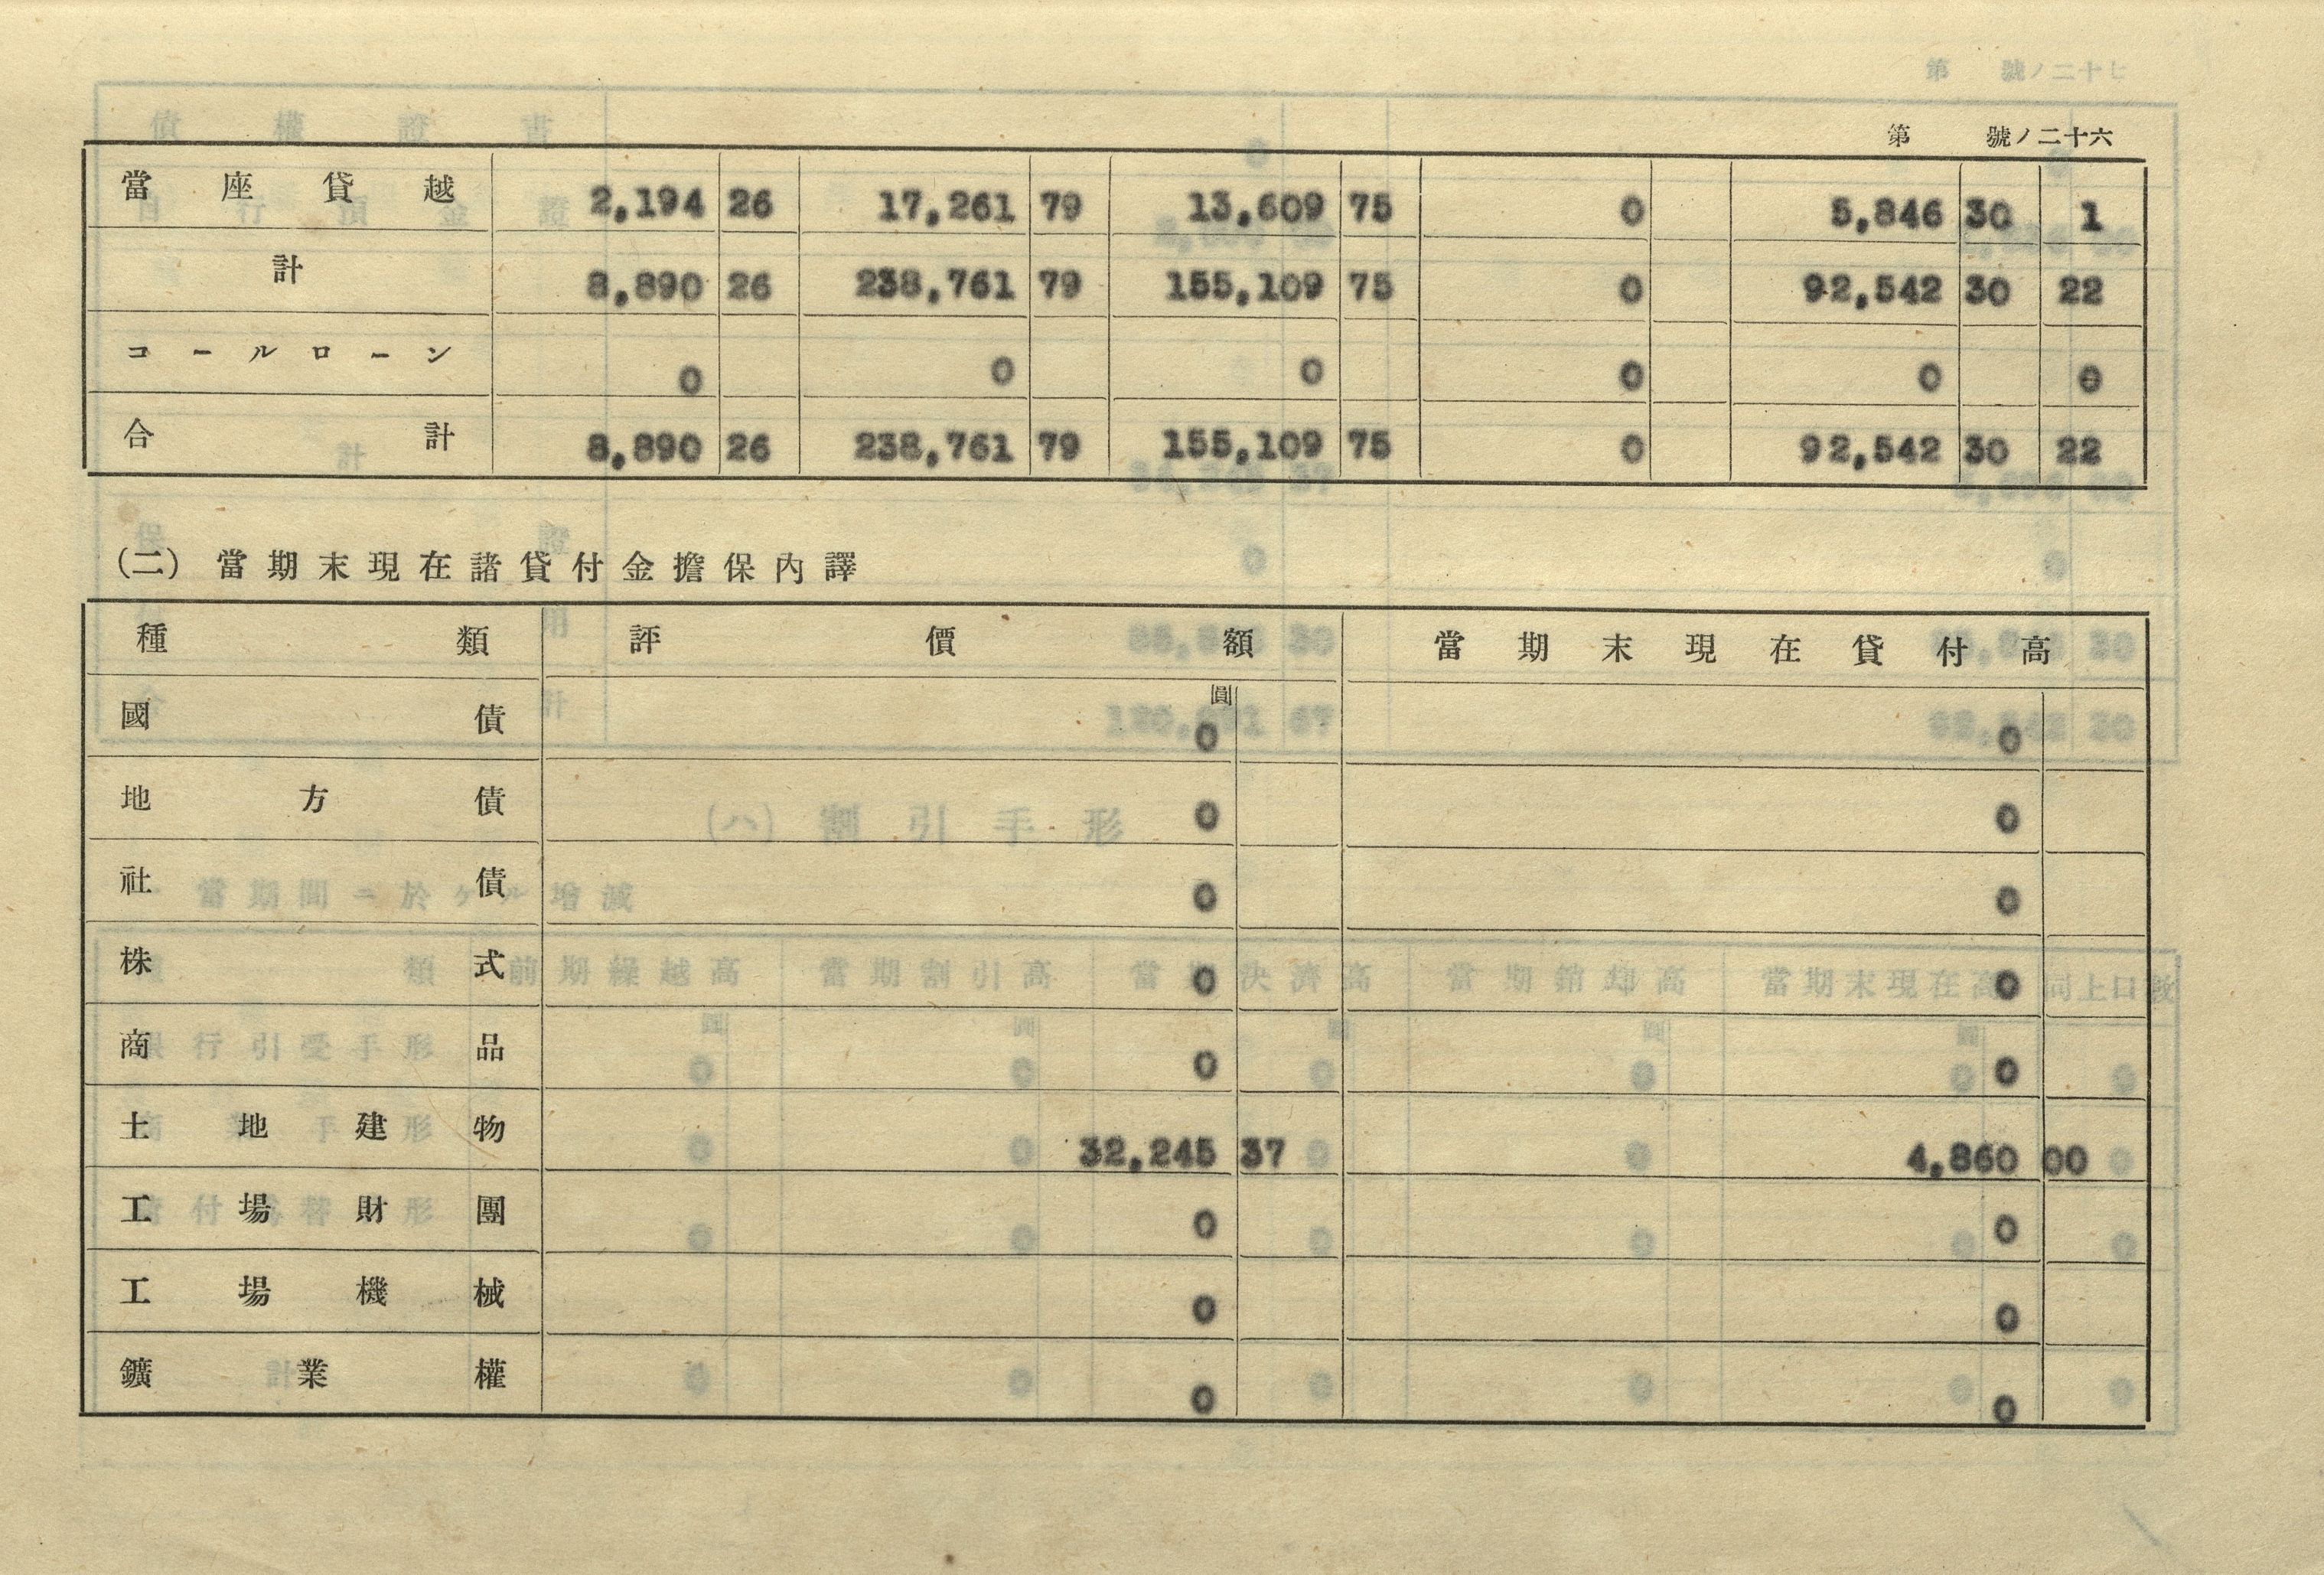 第 號ノ二十六
當座貸越 2,194 26 17,261 79 13,609 75 0 5,846 30 1
計 8,890 26 238,761 79 155,109 75 0 92,542 30 22
コールローン 0 0 0 0 0 0
合計 8,890 26 238,761 79 155,109 75 0 92,542 30 22
(二) 當期末現在諸貸付金擔保內譯
種類 評價額 當期末現在貸付高
圓
國債 0 0
地方債 0 0
社債 0 0
株式 0 0
商品 0 0
土地建物 32,245 37 4,860 00
工場財團 0 0
工場機械 0 0
鑛業權 0 0